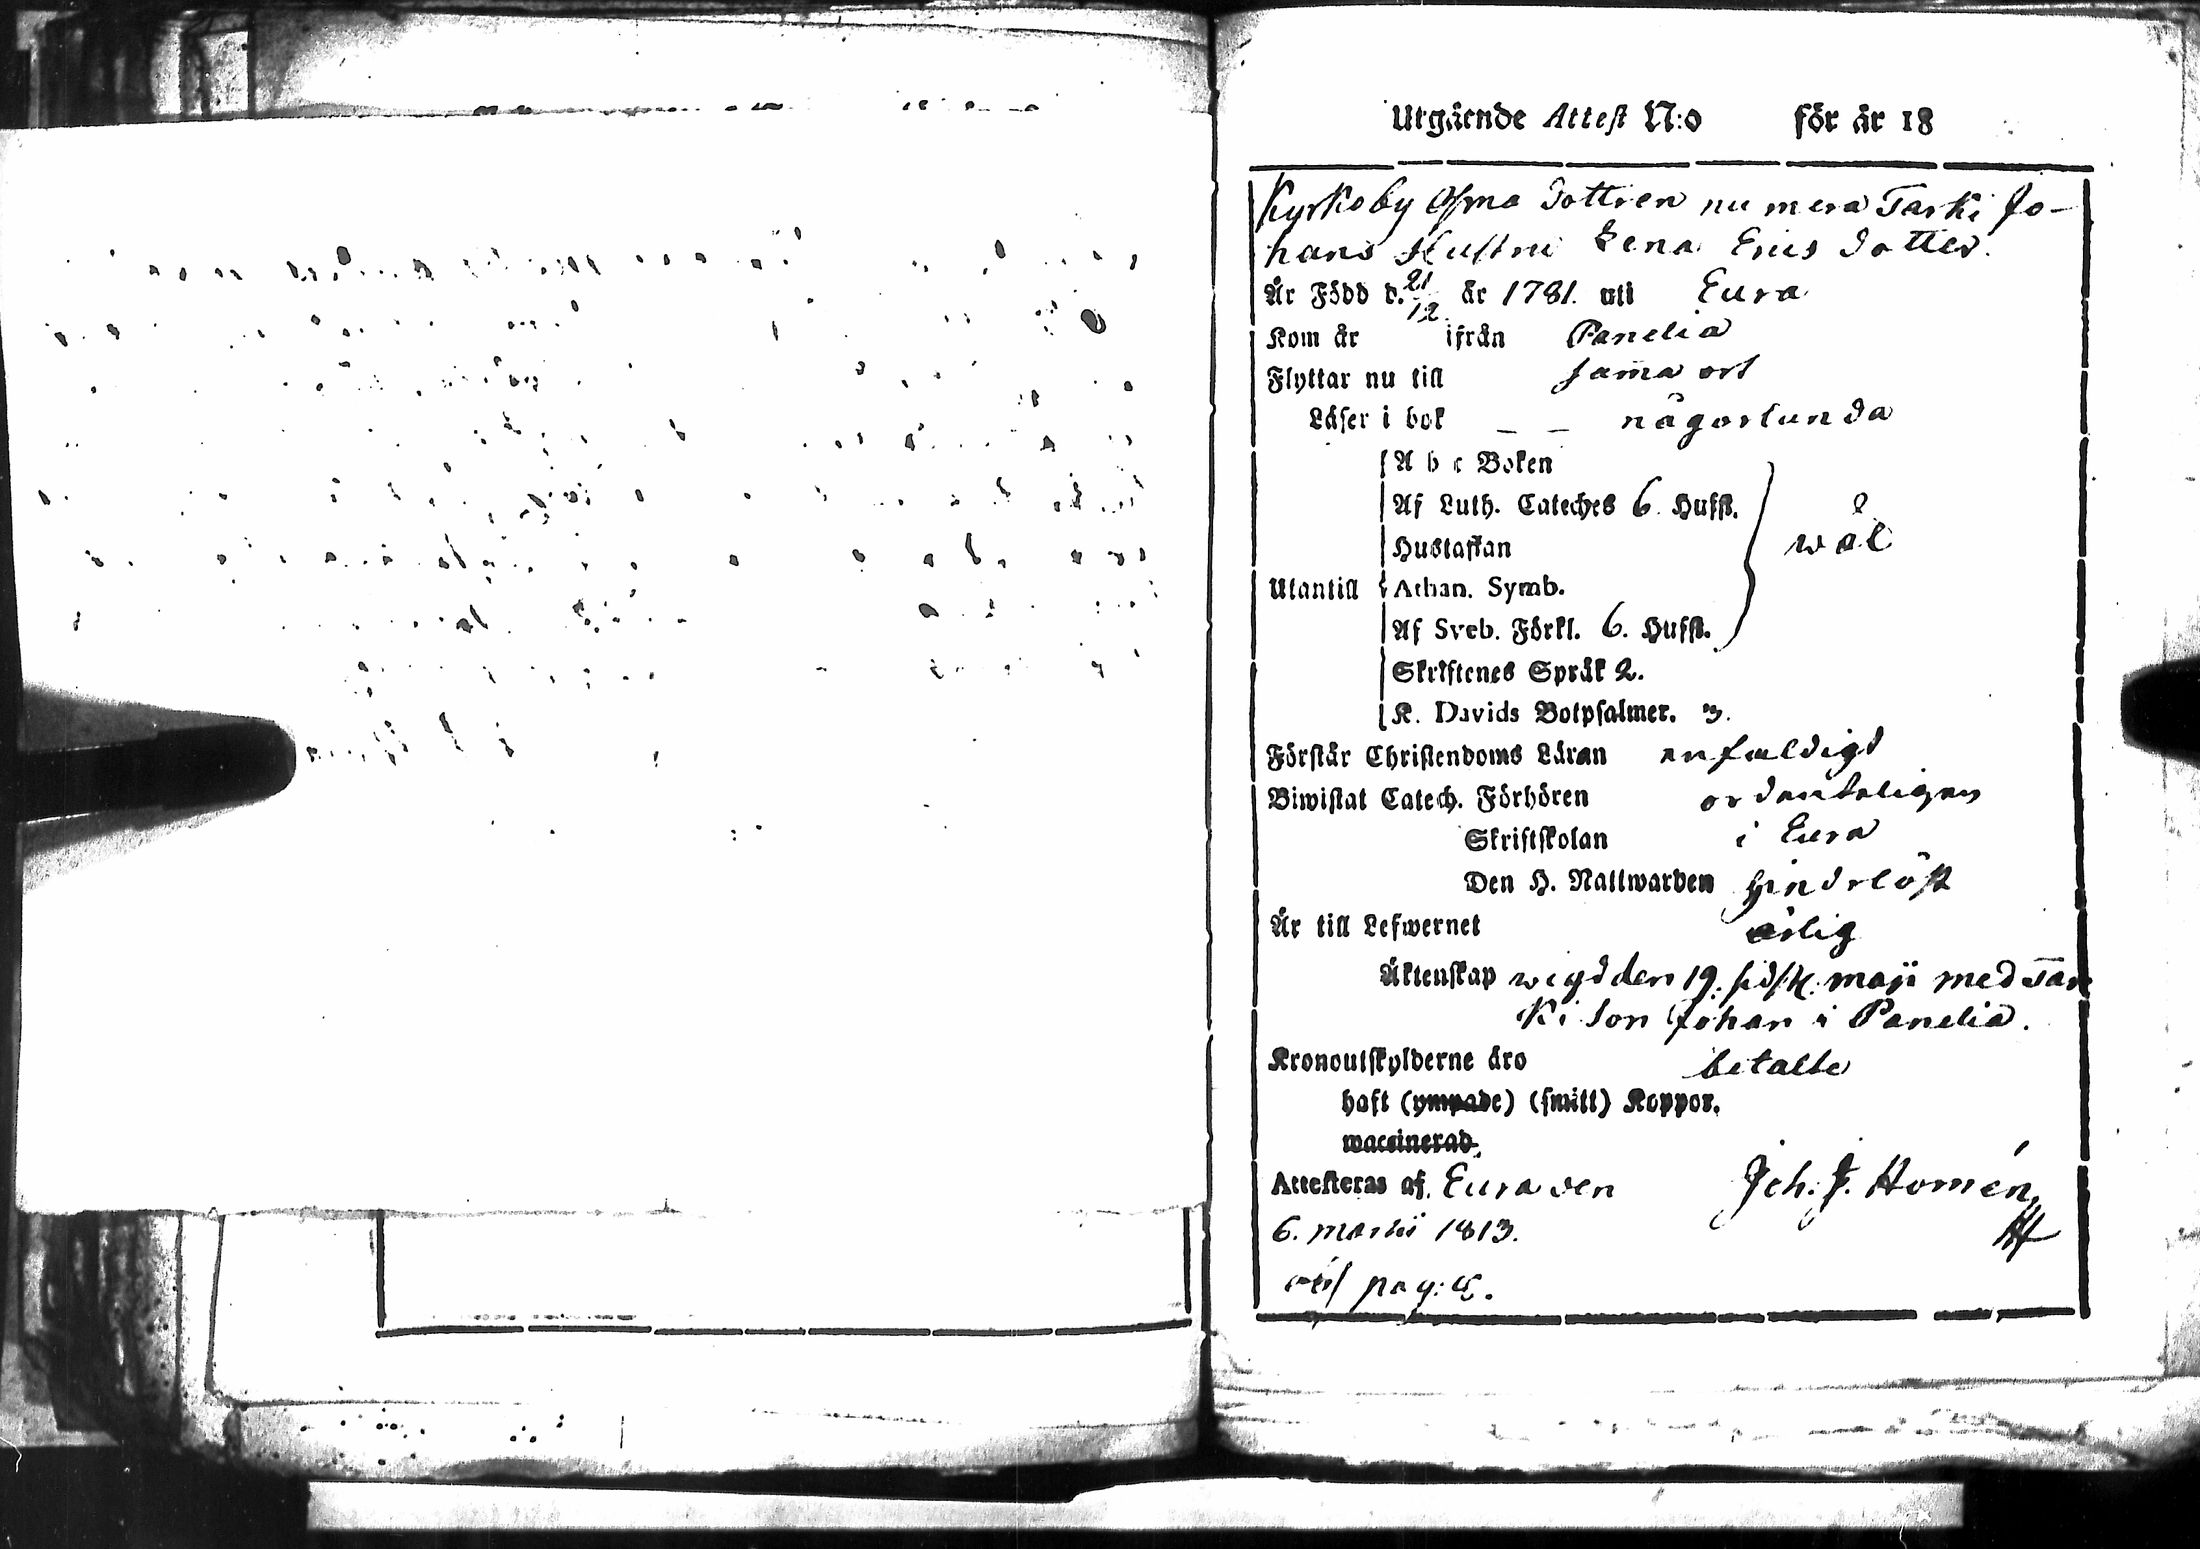 Utgående Attest N:o för år 18
Kyrkoby Osma dottren nu mera Tarki Jo-
hans Hustru Lena Erics dotter.
Är Född d. 21/12 år 1781. uti Eura
Kom år ifrån Panelia
Flyttar nu till samma ort
Läser i bok _ _ någorlunda
A b c Boken
Af Luth. Cateches 6. Hufst.
Hustaflan wäl
Utantill Athan. Symb.
Af Sveb. Förkl. 6. Hufst.
Skriftenes Språk 2.
K. Davids Botpsalmer. 3.
Förstår Christendoms Läran enfaldigt
Biwistat Catech. Förhören ordenteligen
Skriftskolan i Eura
Den H. Nattwarden hinderlöst
Är till Lefwernet ärlig
Äktenskap wigd den 19. sidstl. maji med Tar
ki Son Johan i Panelia.
Kronoutskylderne äro betalte
haft (ympade) (smitt) Koppor.
waccinerad.
Attesteras af. Eura den Joh. J. Homén
6. martii 1813.
pag: 5.